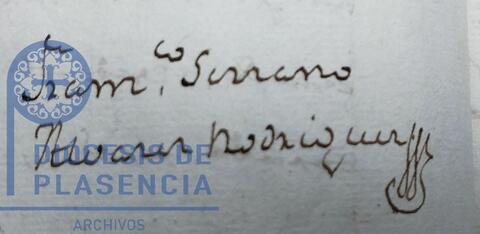 Fran.co Serrano
Alvarez Rodriguez
DIÓCESIS DE
PLASENCIA
ARCHIVOS